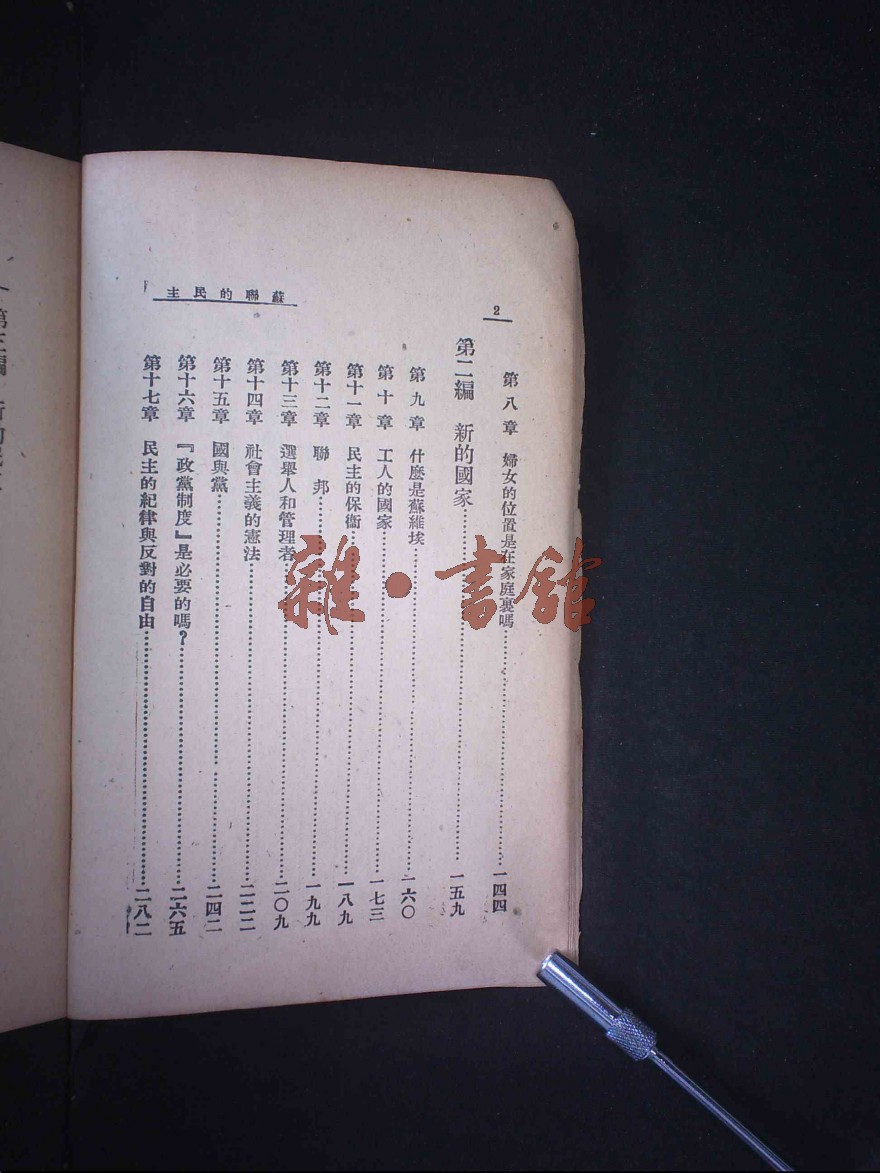 蘇聯的民主
2
第八章 婦女的位置是在家庭裏嗎……一四四
第二編 新的國家……一五九
第九章 什麽是蘇維埃……一六〇
第十章 工人的國家……一七三
第十一章 民主的保衞……一八九
第十二章 聯邦……一九九
第十三章 選舉人和管理者……二〇九
第十四章 社會主義的憲法……二二二
第十五章 國與黨……二四二
第十六章 『政黨制度』是必要的嗎？……二六五
第十七章 民主的紀律與反對的自由……二八二
雜·書館